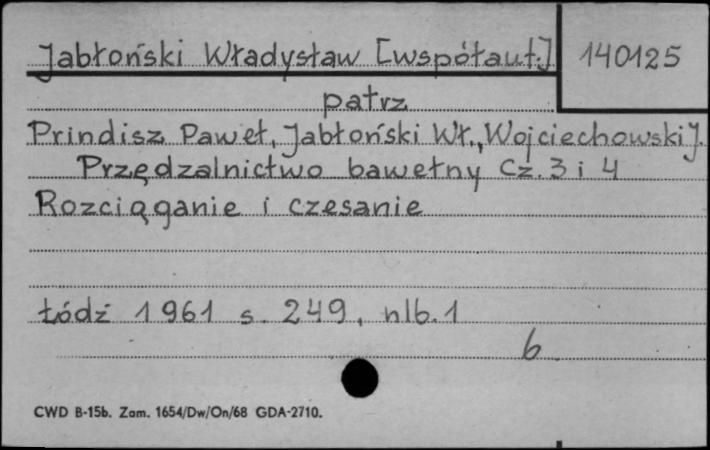 Jabłoński Władysław [współaut.] 140125
patrz
Prindisz Paweł, Jabłoński Wł., Wojciechowski J.
Przędzalnictwo bawełny Cz. 3 i 4
Rozciąganie i czesanie
Łódź 1961 s. 249, nlb. 1
6
CWD B-15b. Zam. 1654/Dw/On/68 GDA-2710.